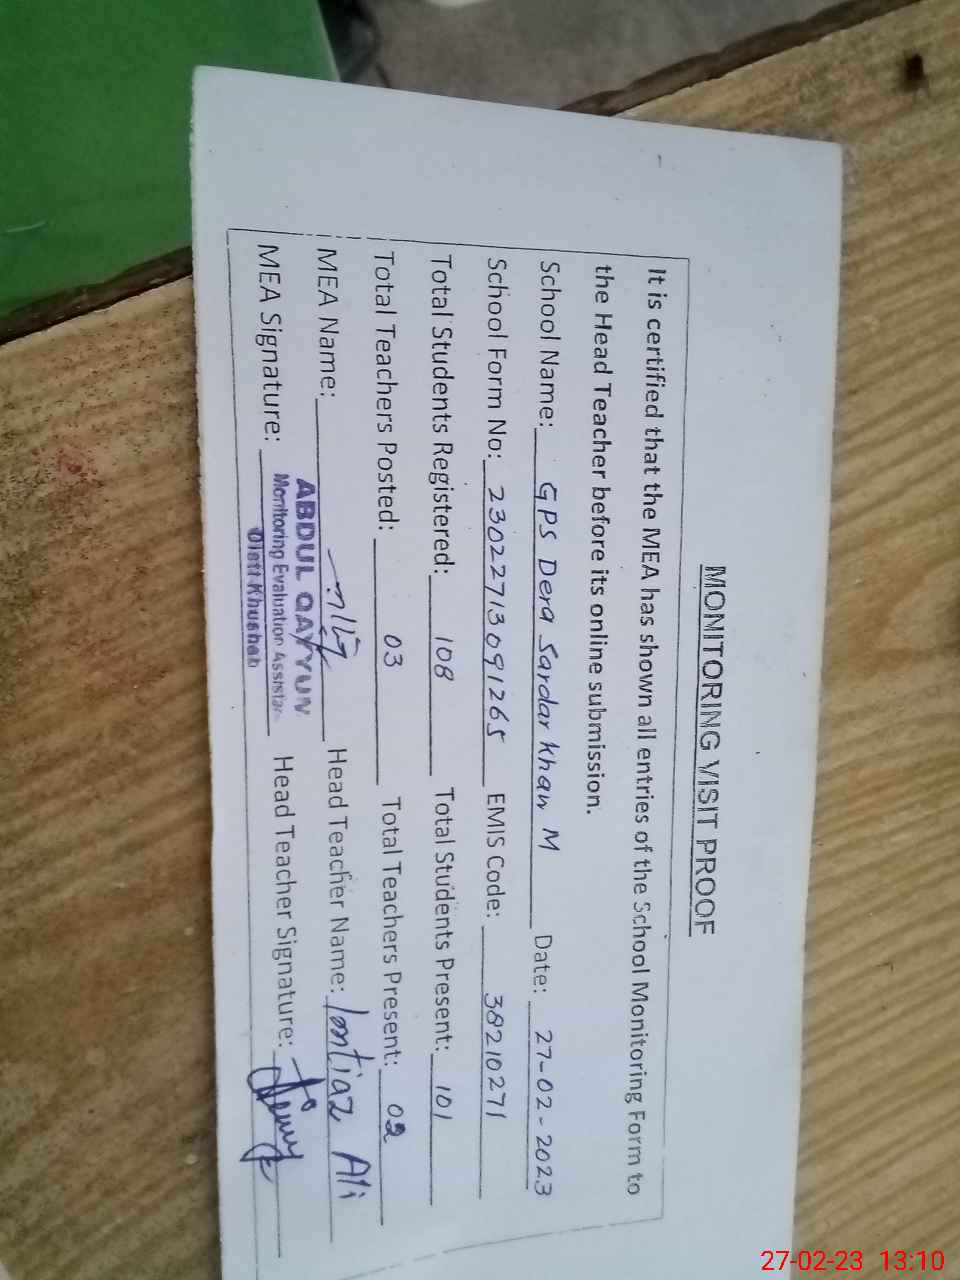 MONITORING VISIT PROOF
It is certified that the MEA has shown all entries of the School Monitoring Form to
the Head Teacher before its online submission.
School Name: GPS Dera Sardar Khan M Date: 27-02-2023
School Form No: 23022713091265 EMIS Code: 38210271
Total Students Registered: 108 Total Students Present: 101
Total Teachers Posted: 03 Total Teachers Present: 02
MEA Name: Head Teacher Name: Imtiaz Ali
ABDUL QAYYUM
MEA Signature: Monitoring Evaluation Assistan Head Teacher Signature:
Distt Khushab
27-02-23 13:10